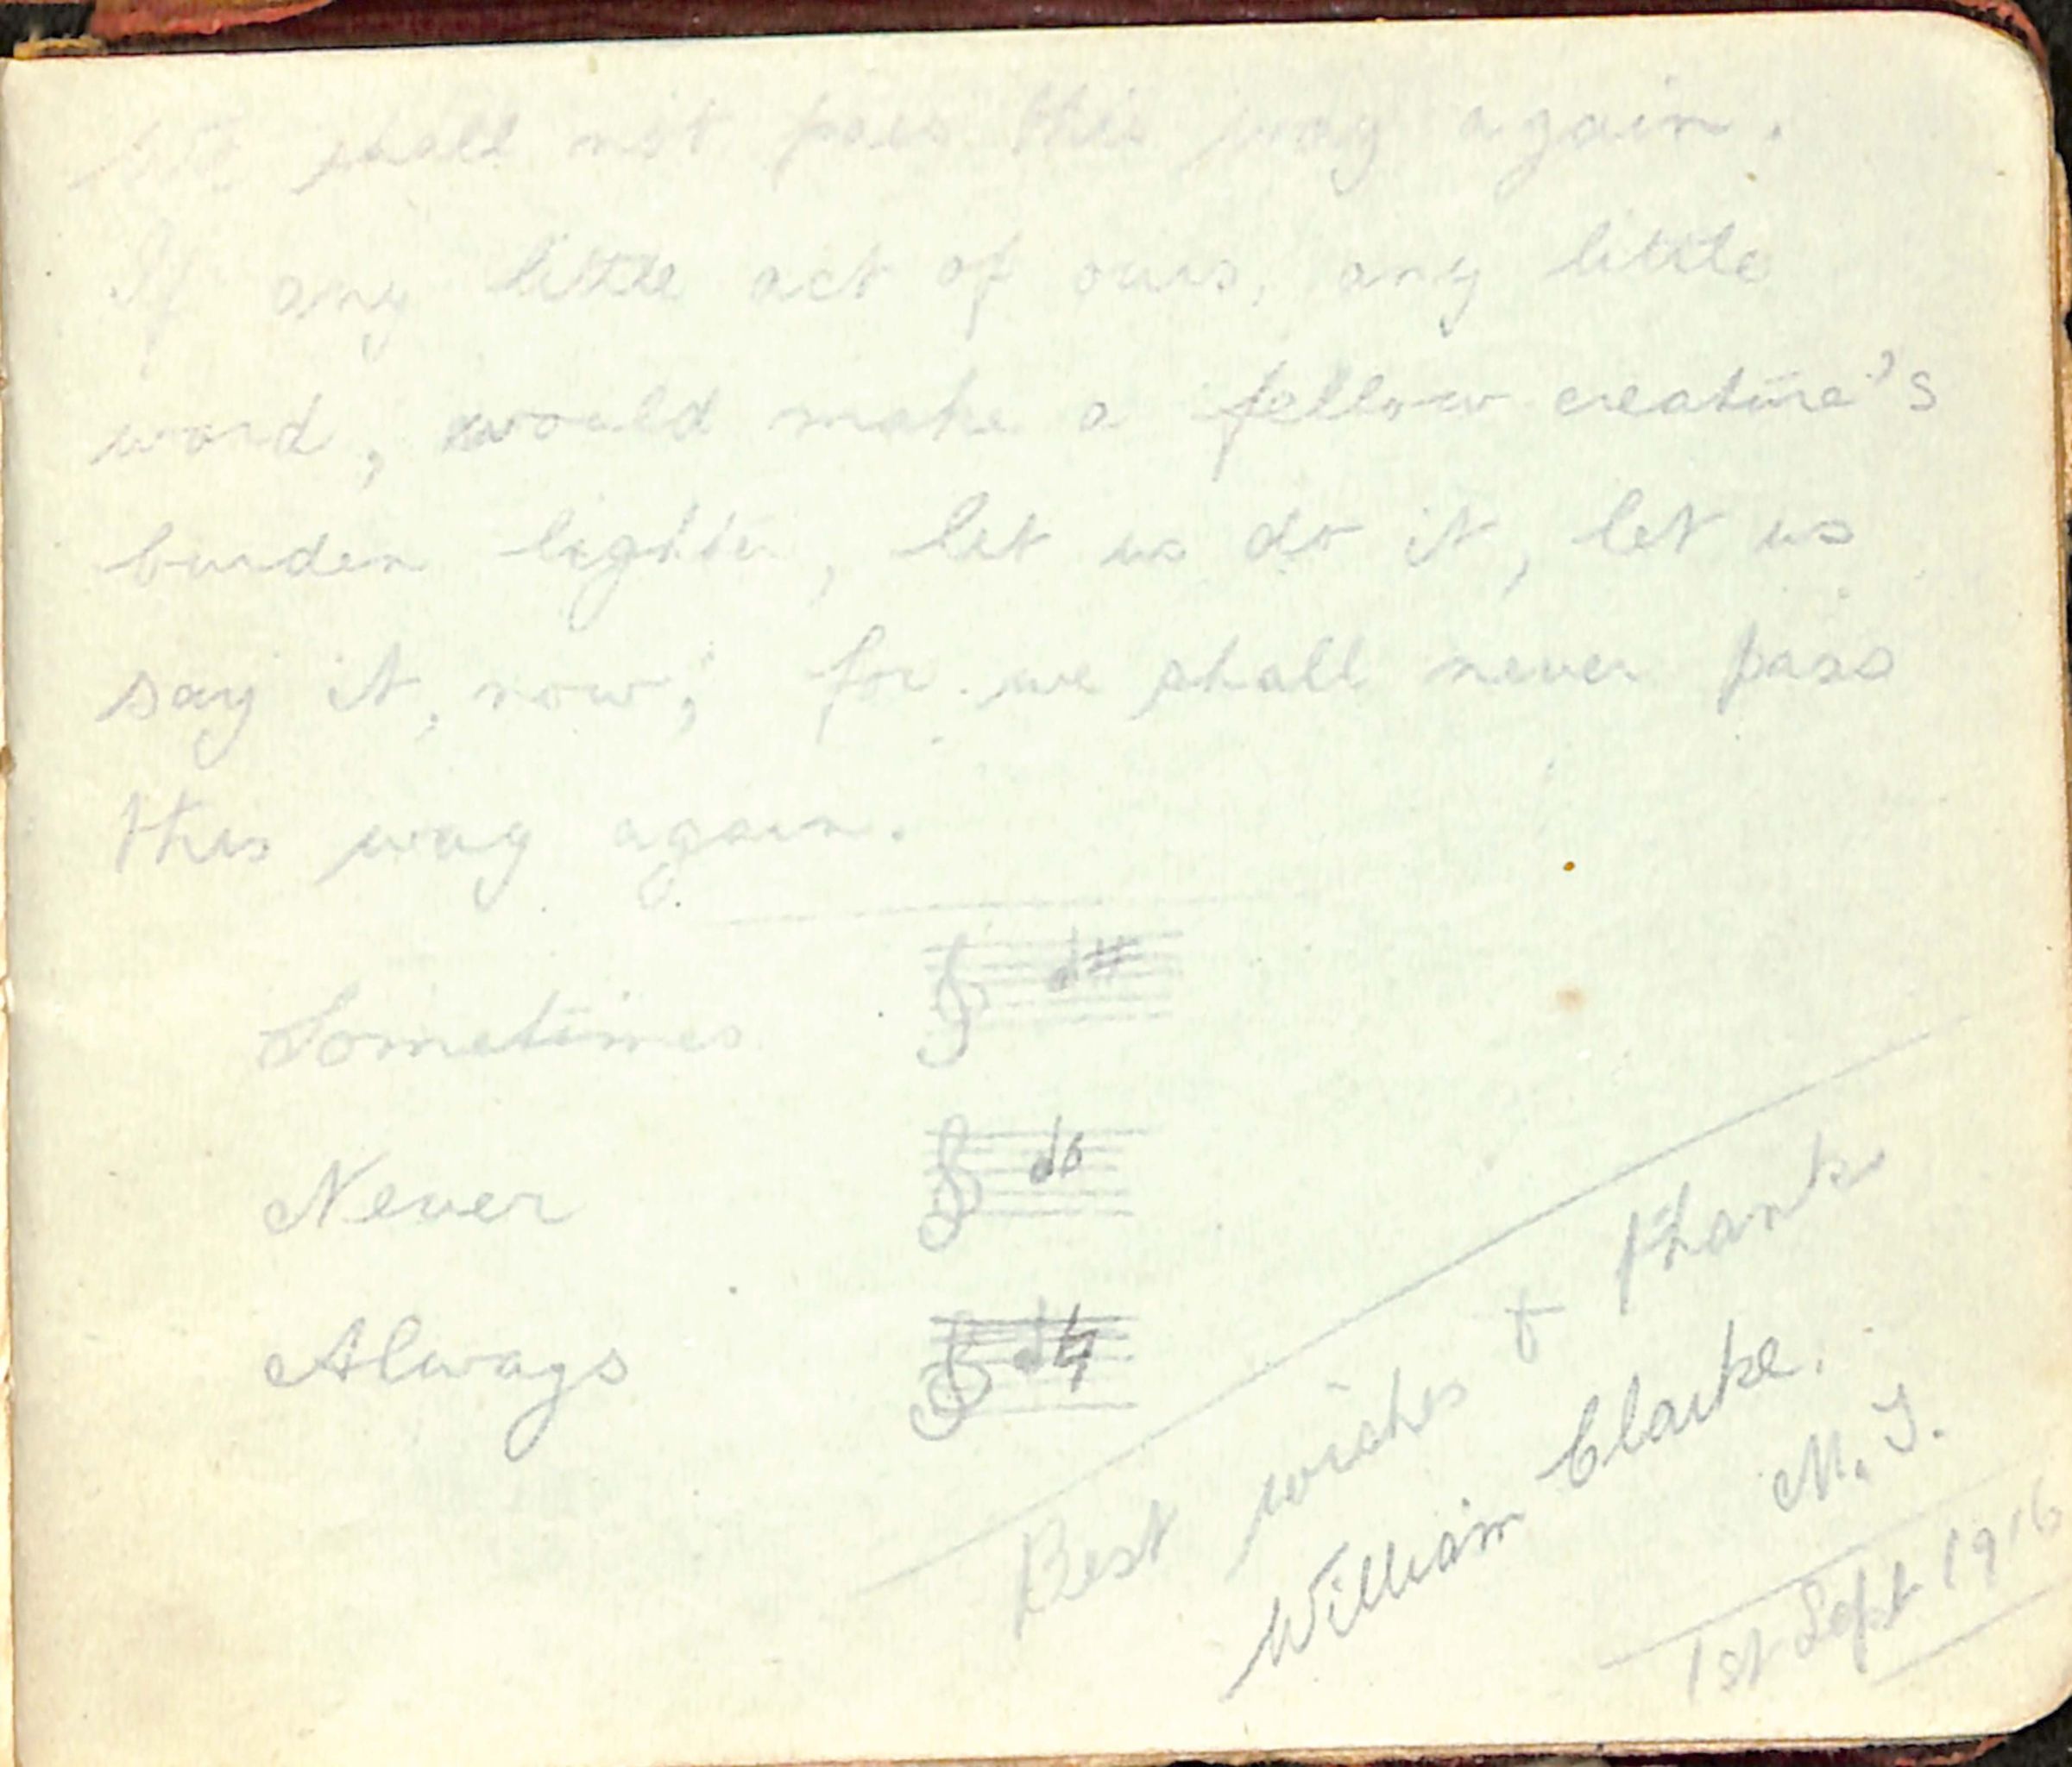 We shall not pass this way again.
If any little act of ours, any little
word, would make a fellow creature's
burden lighter, let us do it, let us
say it, now; for we shall never pass
this way again.
Sometimes
Never
Always
Best wishes & thanks
William Clarke.
M. I.
1st Sept 1916